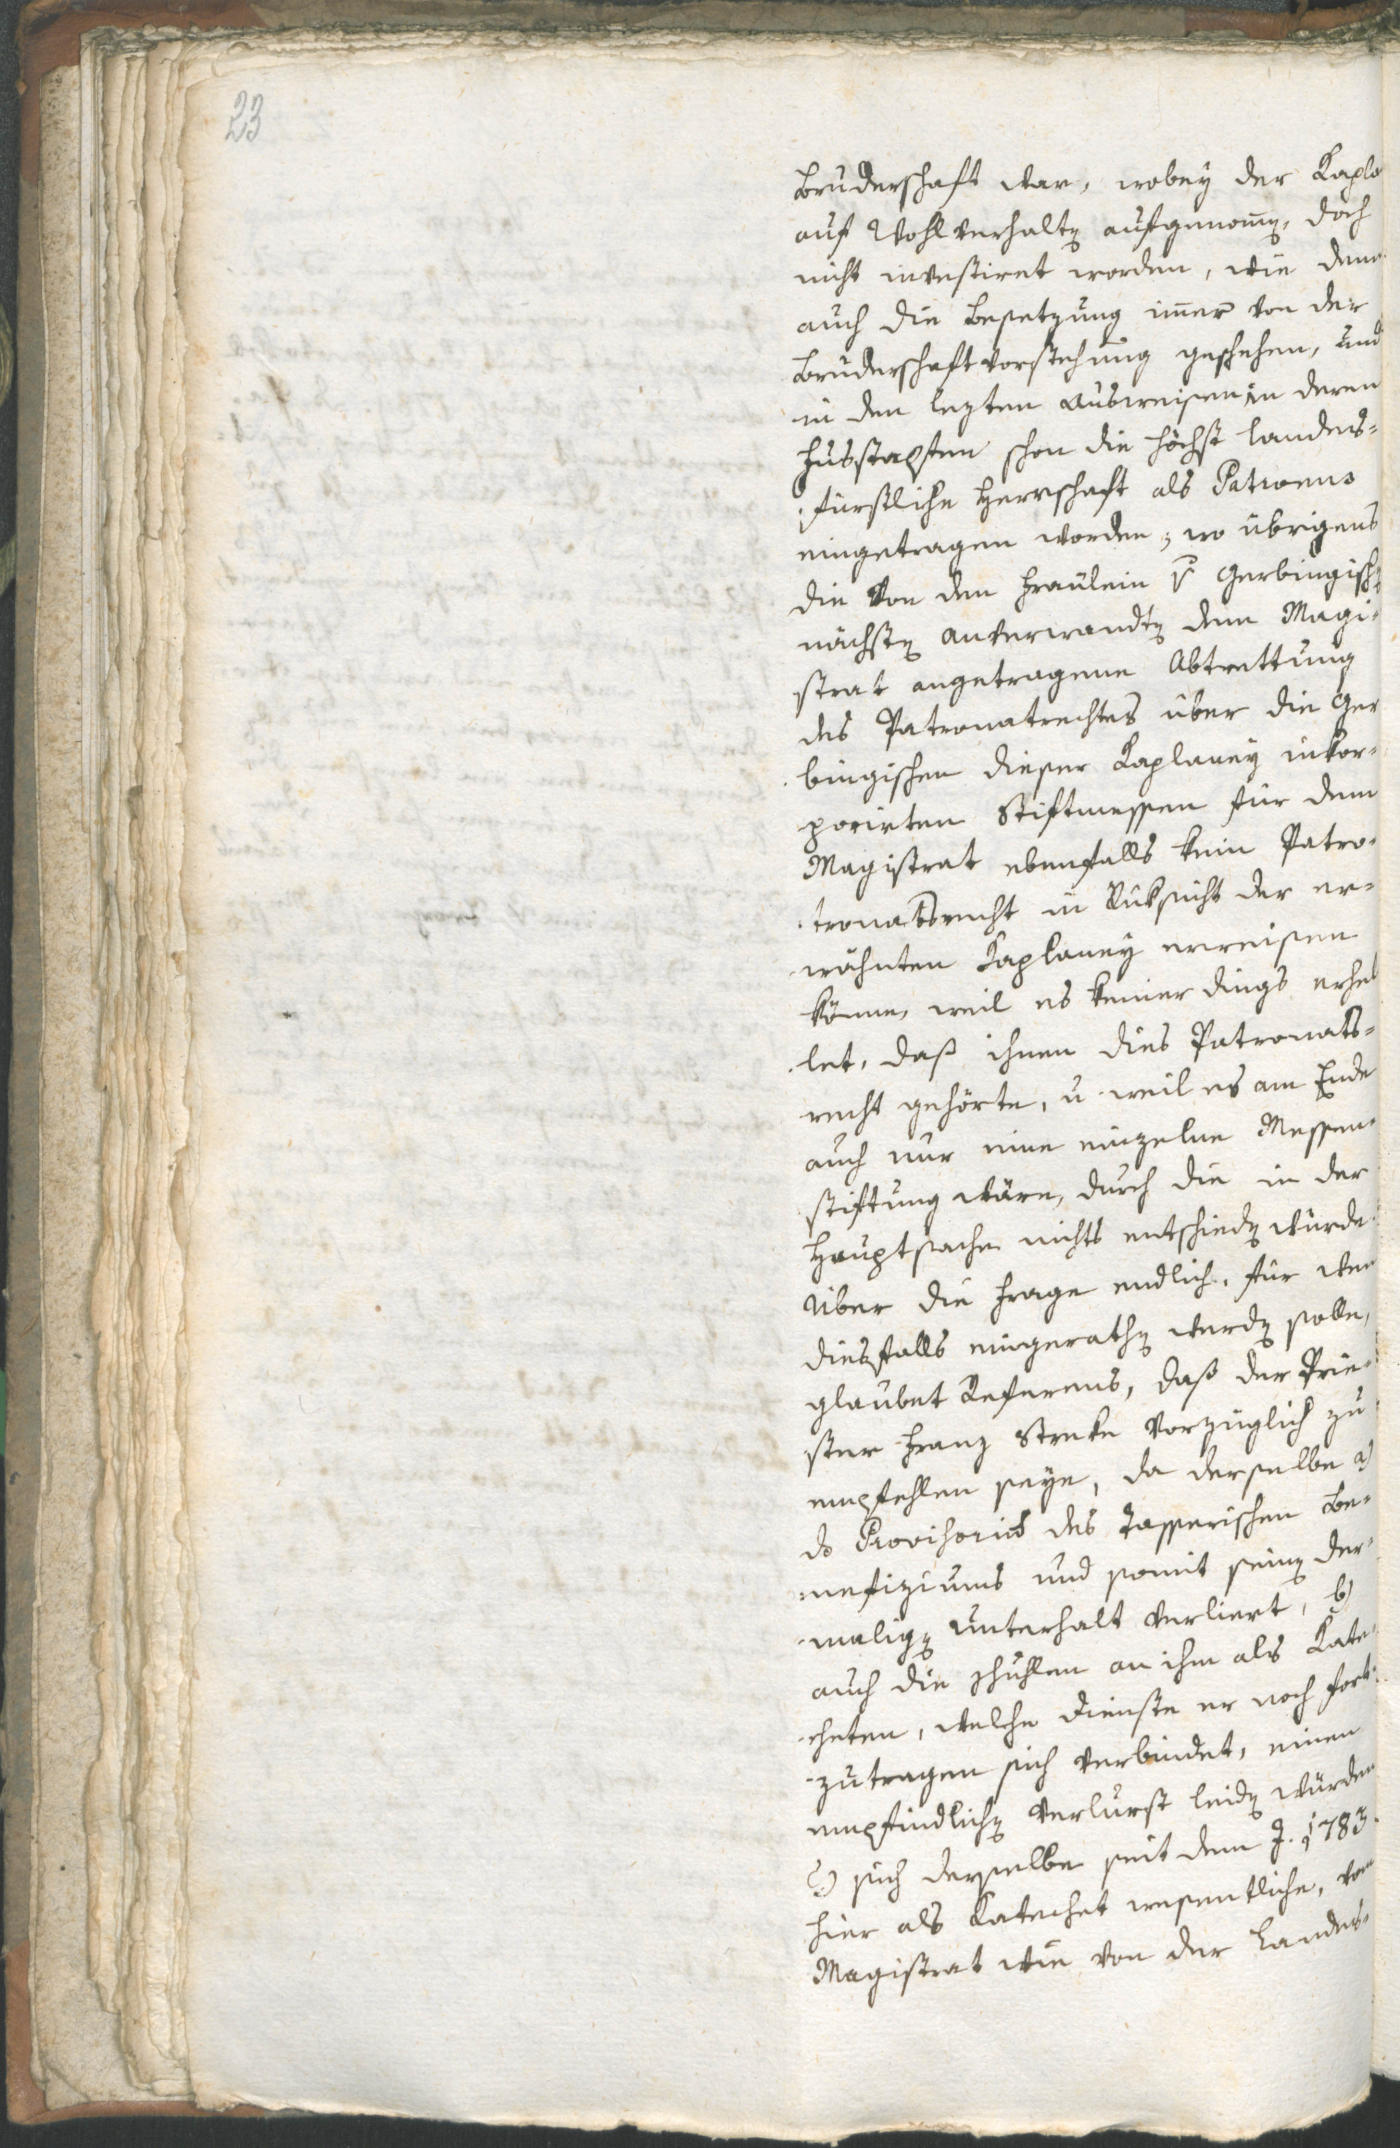 23
Bruderschaft war, wobey der Kapla
auf Wohlverhalten aufgenommen, doch
nicht investiret worden, wie denn
auch die Besetzung immer von der
Bruderschaftvorstehung geschehen, und
in den lezten Ausweisen in deren
Fusstapfen schon die höchst landes-
fürstliche Herrschaft als Patronus
eingetragen worden; wo übrigens
die von den Fräulein v Gerbingisch
nächsten Anverwandten dem Magi-
strat angetragene Abtrettung
des Patronatrechtes über die Ger
bingischen dieser Kaplaney inkor-
porirten Stiftmessen für dem
Magistrat ebenfalls kein Patro-
tronatsrecht in Rüksicht der er-
wähnten Kaplaney erweisen
könne, weil es keiner dings erhel
let, daß ihnen dies Patronats-
recht gehörte, u. weil es am Ende
auch nur eine einzelne Messen-
stiftung wäre, durch die in der
Hauptsache nichts entschieden würde.
Über die Frage endlich, für wen
diesfalls eingerathen werden solle,
glaubet Referens, daß der Prie-
ster Franz Streke vorzüglich zu
empfehlen seye, da derselbe a)
das Provisorium des Zasserischen Be-
nefiziums und somit seinen der-
maligen Unterhalt verliert, b)
auch die Schullen an ihm als Kate-
cheten, welche Dienste er noch fort-
zutragen sich verbindet, einen
empfindlichen Verlurst leiden würden
c) sich derselbe seit dem J. 1783.
hier als Katechet wesentliche, vom
Magistrat wie von der Landes-